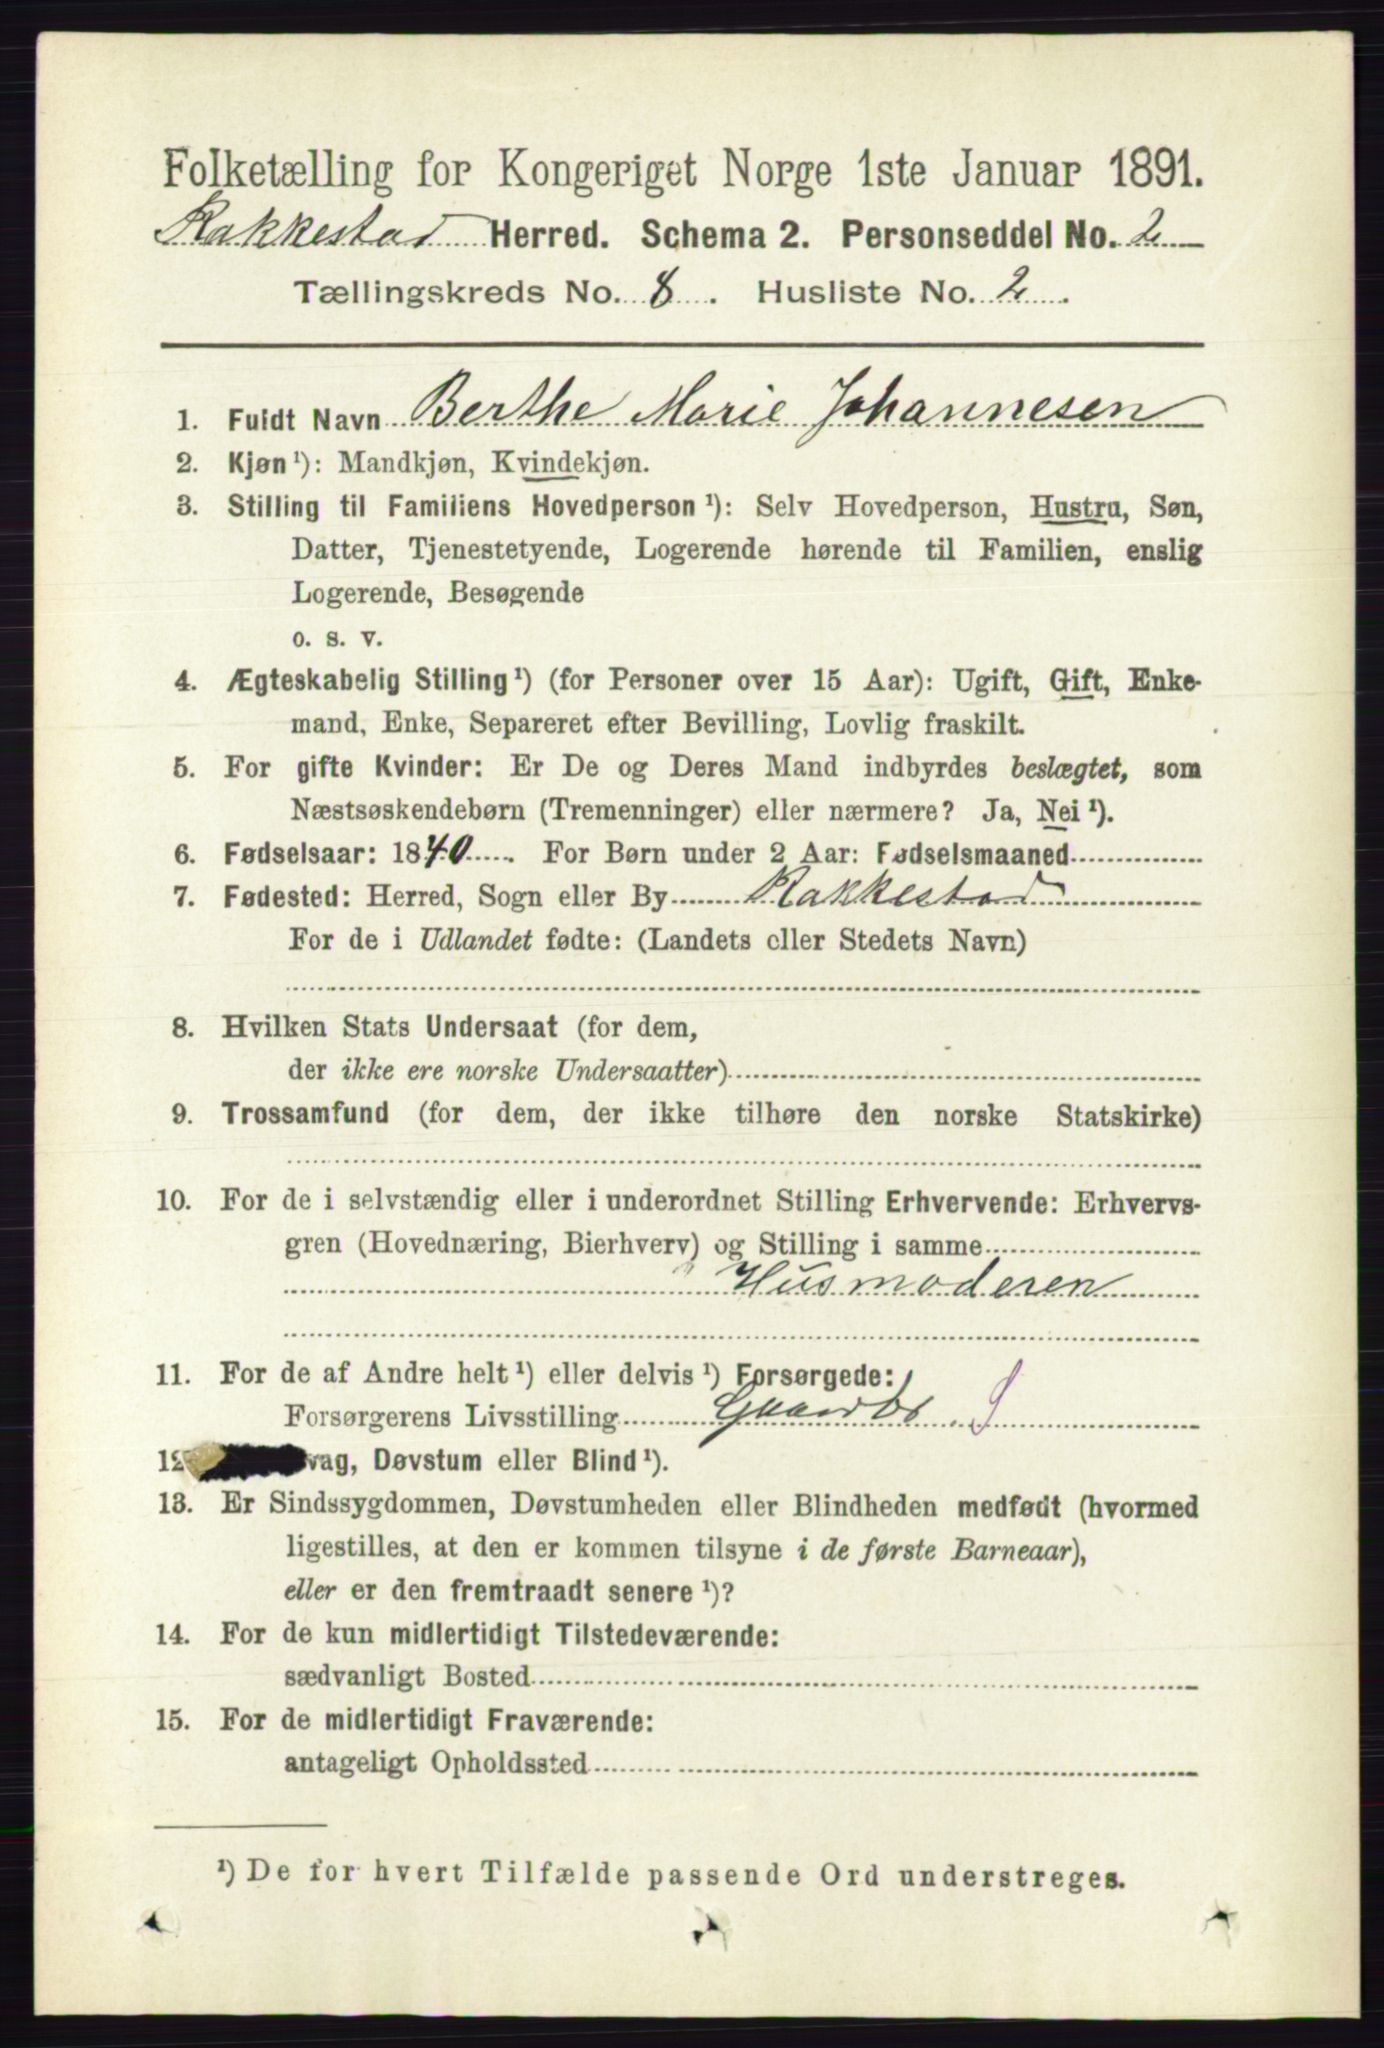 Folketælling for Kongeriget Norge 1ste Januar 1891.
Rakkestad Herred. Schema 2. Personseddel No. 2
Tællingskreds No. 8. Husliste No. 2.
1. Fuldt Navn Berthe Marie Johannesen
2. Kjøn ¹): Mandkjøn, Kvindekjøn.
3. Stilling til Familiens Hovedperson ¹): Selv Hovedperson, Hustru, Søn,
Datter, Tjenestetyende, Logerende hørende til Familien, enslig
Logerende, Besøgende
o. s. v.
4. Ægteskabelig Stilling ¹) (for Personer over 15 Aar): Ugift, Gift, Enke-
mand, Enke, Separeret efter Bevilling, Lovlig fraskilt.
5. For gifte Kvinder: Er De og Deres Mand indbyrdes beslægtet, som
Næstsøskendebørn (Tremenninger) eller nærmere? Ja, Nei ¹).
6. Fødselsaar: 1840. For Børn under 2 Aar: Fødselsmaaned
7. Fødested: Herred, Sogn eller By Rakkestad
For de i Udlandet fødte: (Landets eller Stedets Navn)
8. Hvilken Stats Undersaat (for dem,
der ikke ere norske Undersaatter)
9. Trossamfund (for dem, der ikke tilhøre den norske Statskirke)
10. For de i selvstændig eller i underordnet Stilling Erhvervende: Erhvervs-
gren (Hovednæring, Bierhverv) og Stilling i samme
Husmoderen
11. For de af Andre helt ¹) eller delvis ¹) Forsørgede:
Forsørgerens Livsstilling Gaardbr. S
vag, Døvstum eller Blind ¹).
13. Er Sindssygdommen, Døvstumheden eller Blindheden medfødt (hvormed
ligestilles, at den er kommen tilsyne i de første Barneaar),
eller er den fremtraadt senere ¹)?
14. For de kun midlertidigt Tilstedeværende:
sædvanligt Bosted
15. For de midlertidigt Fraværende:
antageligt Opholdssted
¹) De for hvert Tilfælde passende Ord understreges.